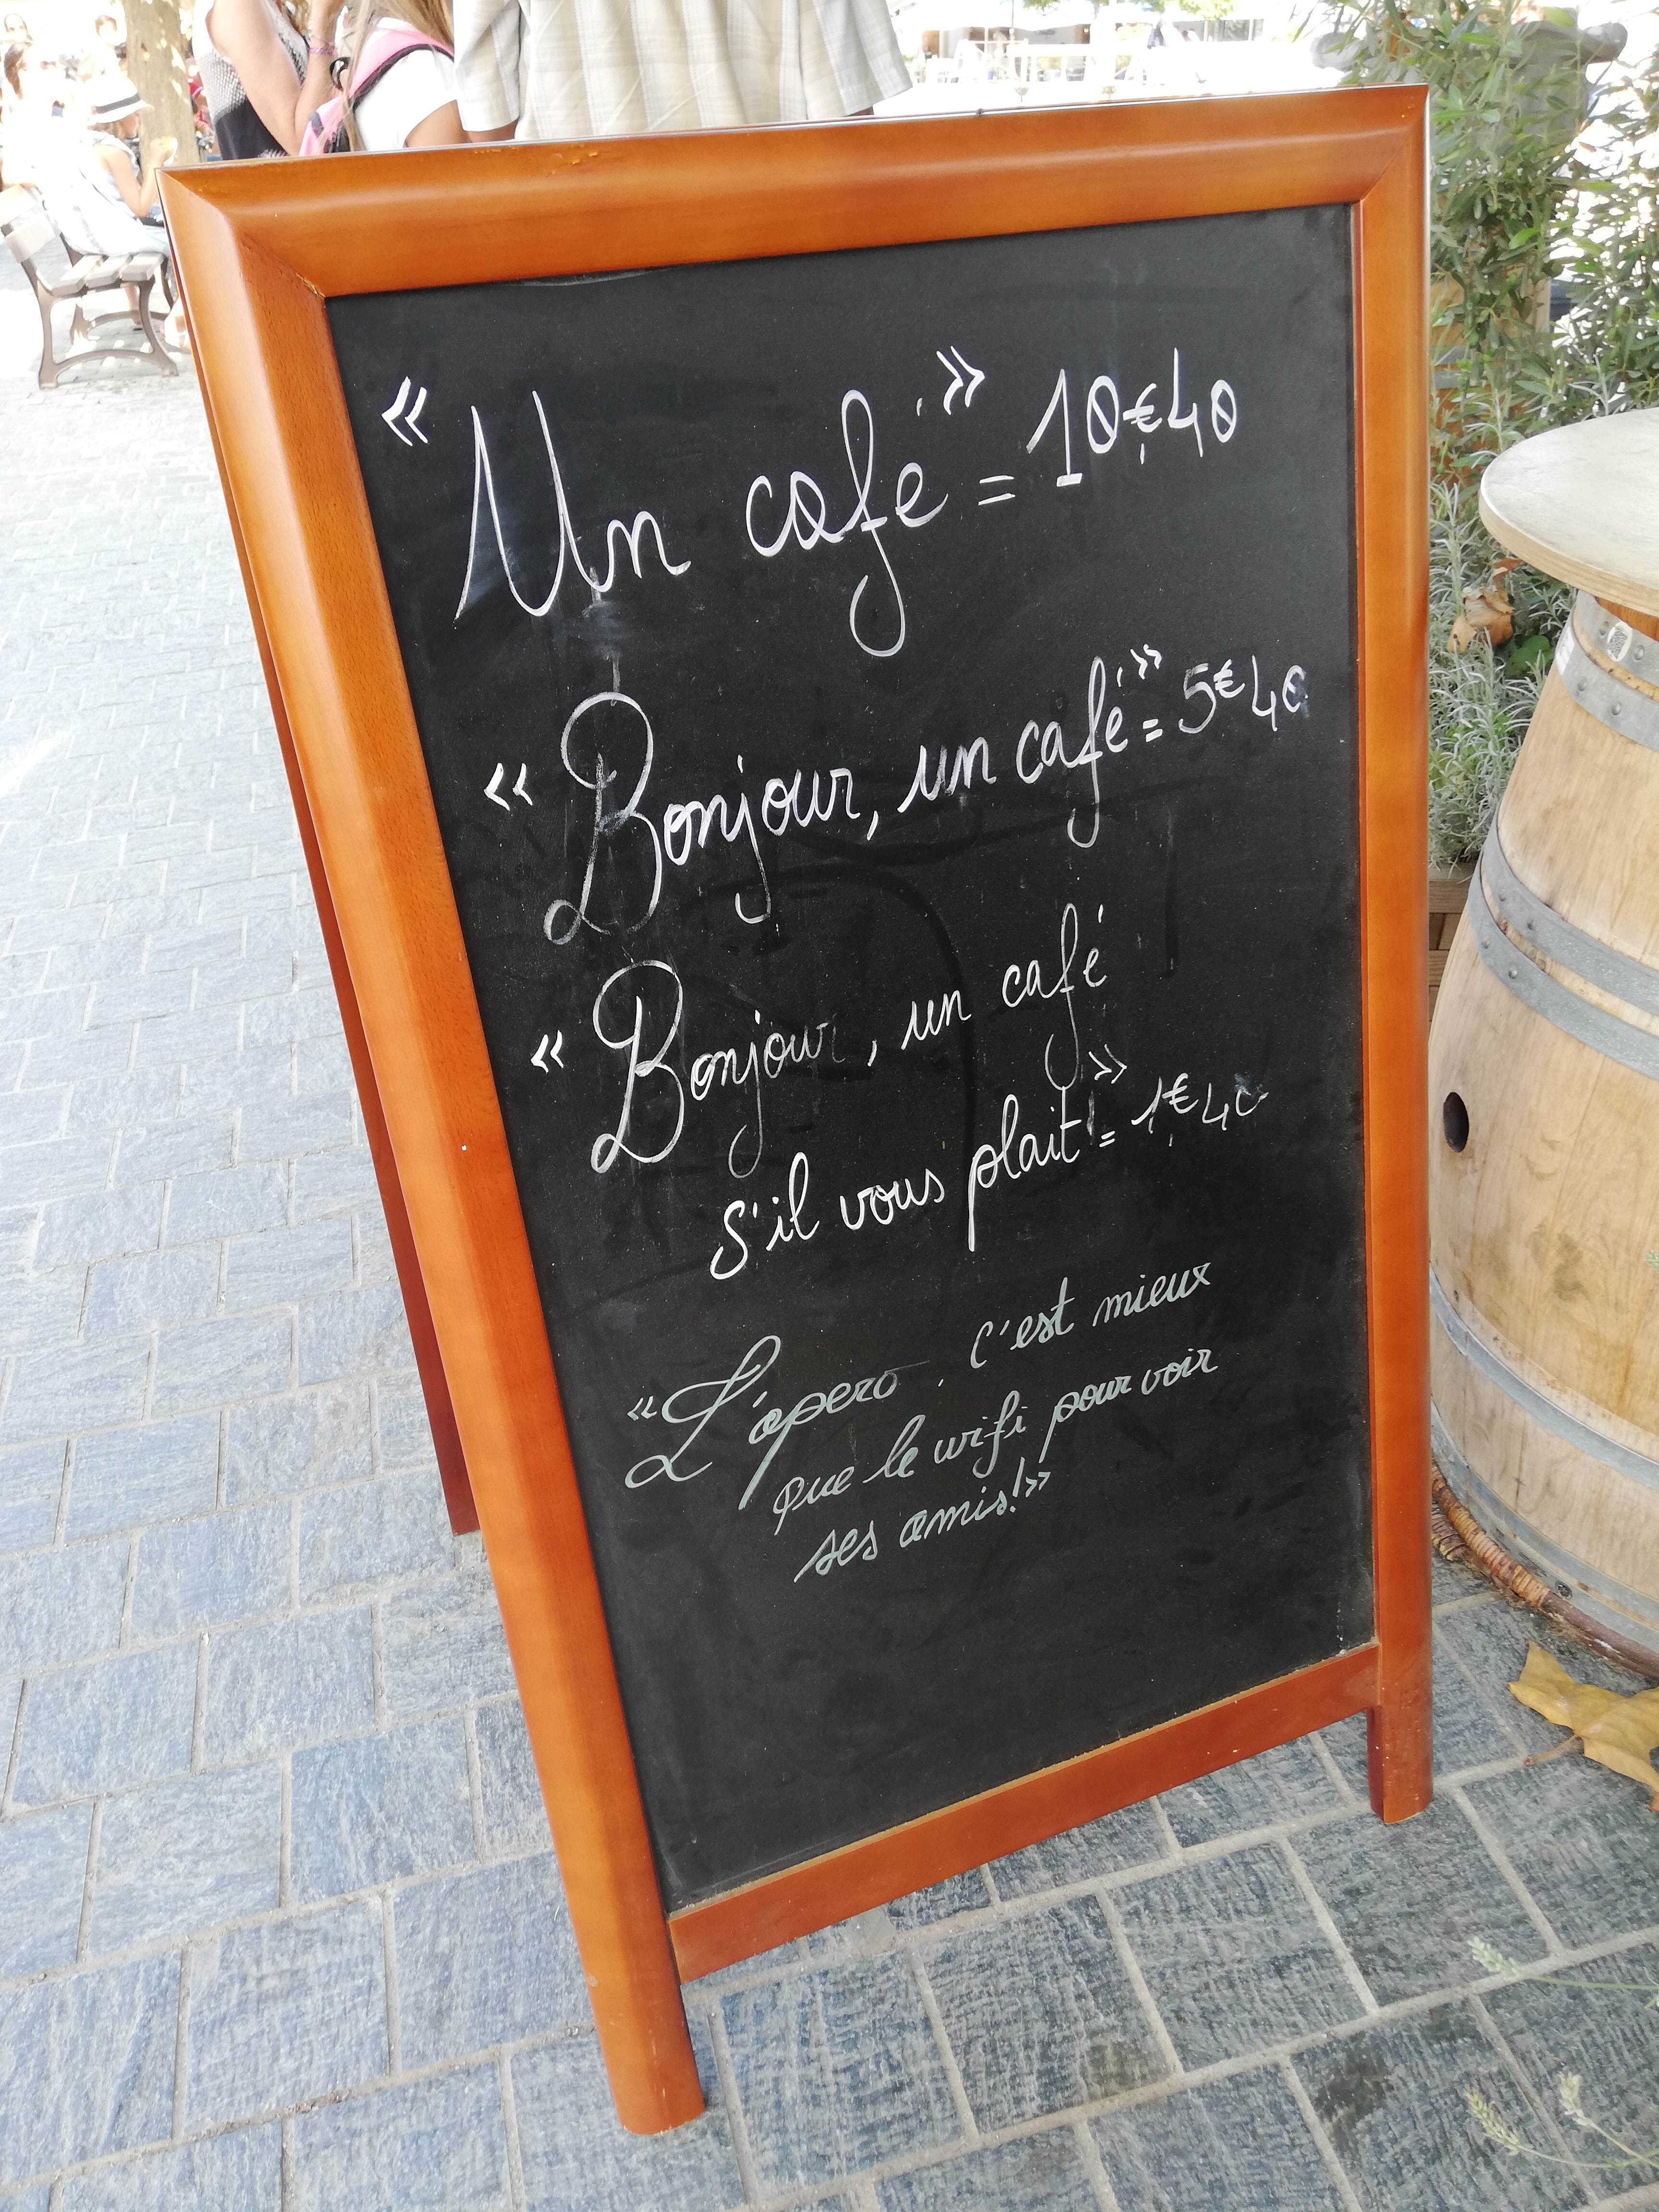 « Un café » = 10€40
« Bonjour, un café » = 5€40
« Bonjour, un café
s'il vous plait ! » = 1€40
« L'apero, c'est mieux
que le wifi pour voir
ses amis ! »